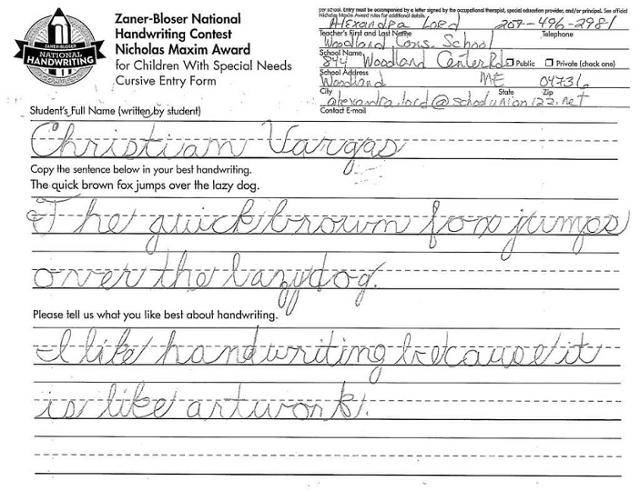 ZANER-BLOSER
NATIONAL
HANDWRITING
Zaner-Bloser National
Handwriting Contest
Nicholas Maxim Award
for Children With Special Needs
Cursive Entry Form
per school. Entry must be accompanied by a letter signed by the occupational therapist, special education provider, and/or principal. See official
Nicholas Maxim Award rules for additional details.
Alexandra Lord 207-496-2981
Teacher's First and Last Name Telephone
Woodland Cons. School
School Name
844 Woodland Center Rd Public Private (check one)
School Address
Woodland ME 04736
City State Zip
alexandra.lord@schoolunion122.net
Contact E-mail
Student's Full Name (written by student)
Christian Vargas
Copy the sentence below in your best handwriting.
The quick brown fox jumps over the lazy dog.
The quick brown fox jumps
over the lazy dog.
Please tell us what you like best about handwriting.
I like handwriting because it
is like artwork.